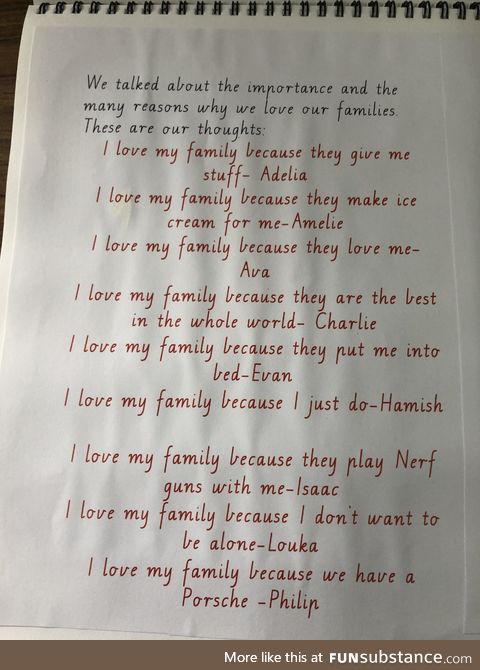 We talked about the importance and the
many reasons why we love our families.
These are our thoughts:
I love my family because they give me
stuff- Adelia
I love my family because they make ice
cream for me-Amelie
I love my family because they love me-
Ava
I love my family because they are the best
in the whole world- Charlie
I love my family because they put me into
bed-Evan
I love my family because I just do-Hamish
I love my family because they play Nerf
guns with me-Isaac
I love my family because I don't want to
be alone-Louka
I love my family because we have a
Porsche -Philip
More like this at FUNsubstance.com